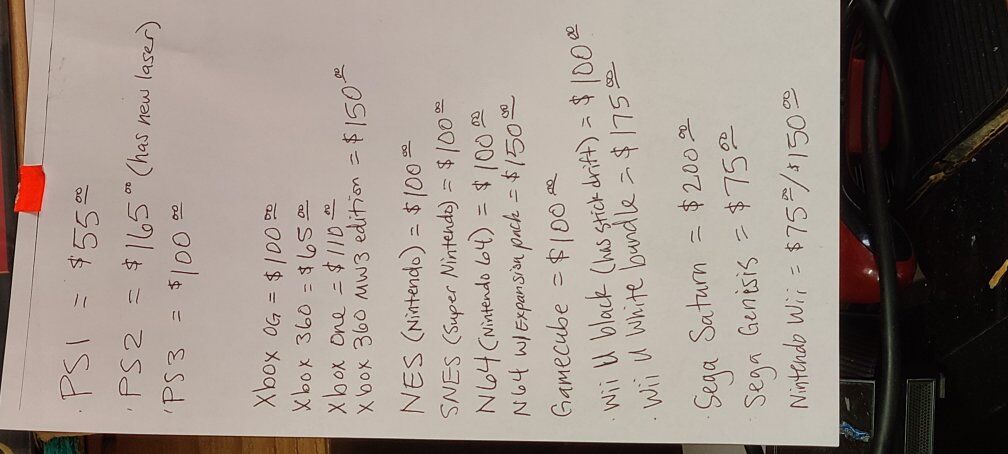 ·PS1 = $55.00
·PS2 = $165.00 (has new laser)
·PS3 = $100.00
Xbox OG = $100.00
Xbox 360 = $65.00
Xbox One = $110.00
Xbox 360 MW3 edition = $150.00
NES (Nintendo) = $100.00
SNES (Super Nintendo) = $100.00
N64 (Nintendo 64) = $100.00
N64 w/Expansion pack = $150.00
Gamecube = $100.00
·Wii U black (has stick drift) = $100.00
·Wii U white bundle = $175.00
·Sega Saturn = $200.00
Sega Genisis = $75.00
Nintendo Wii = $75.00/$150.00